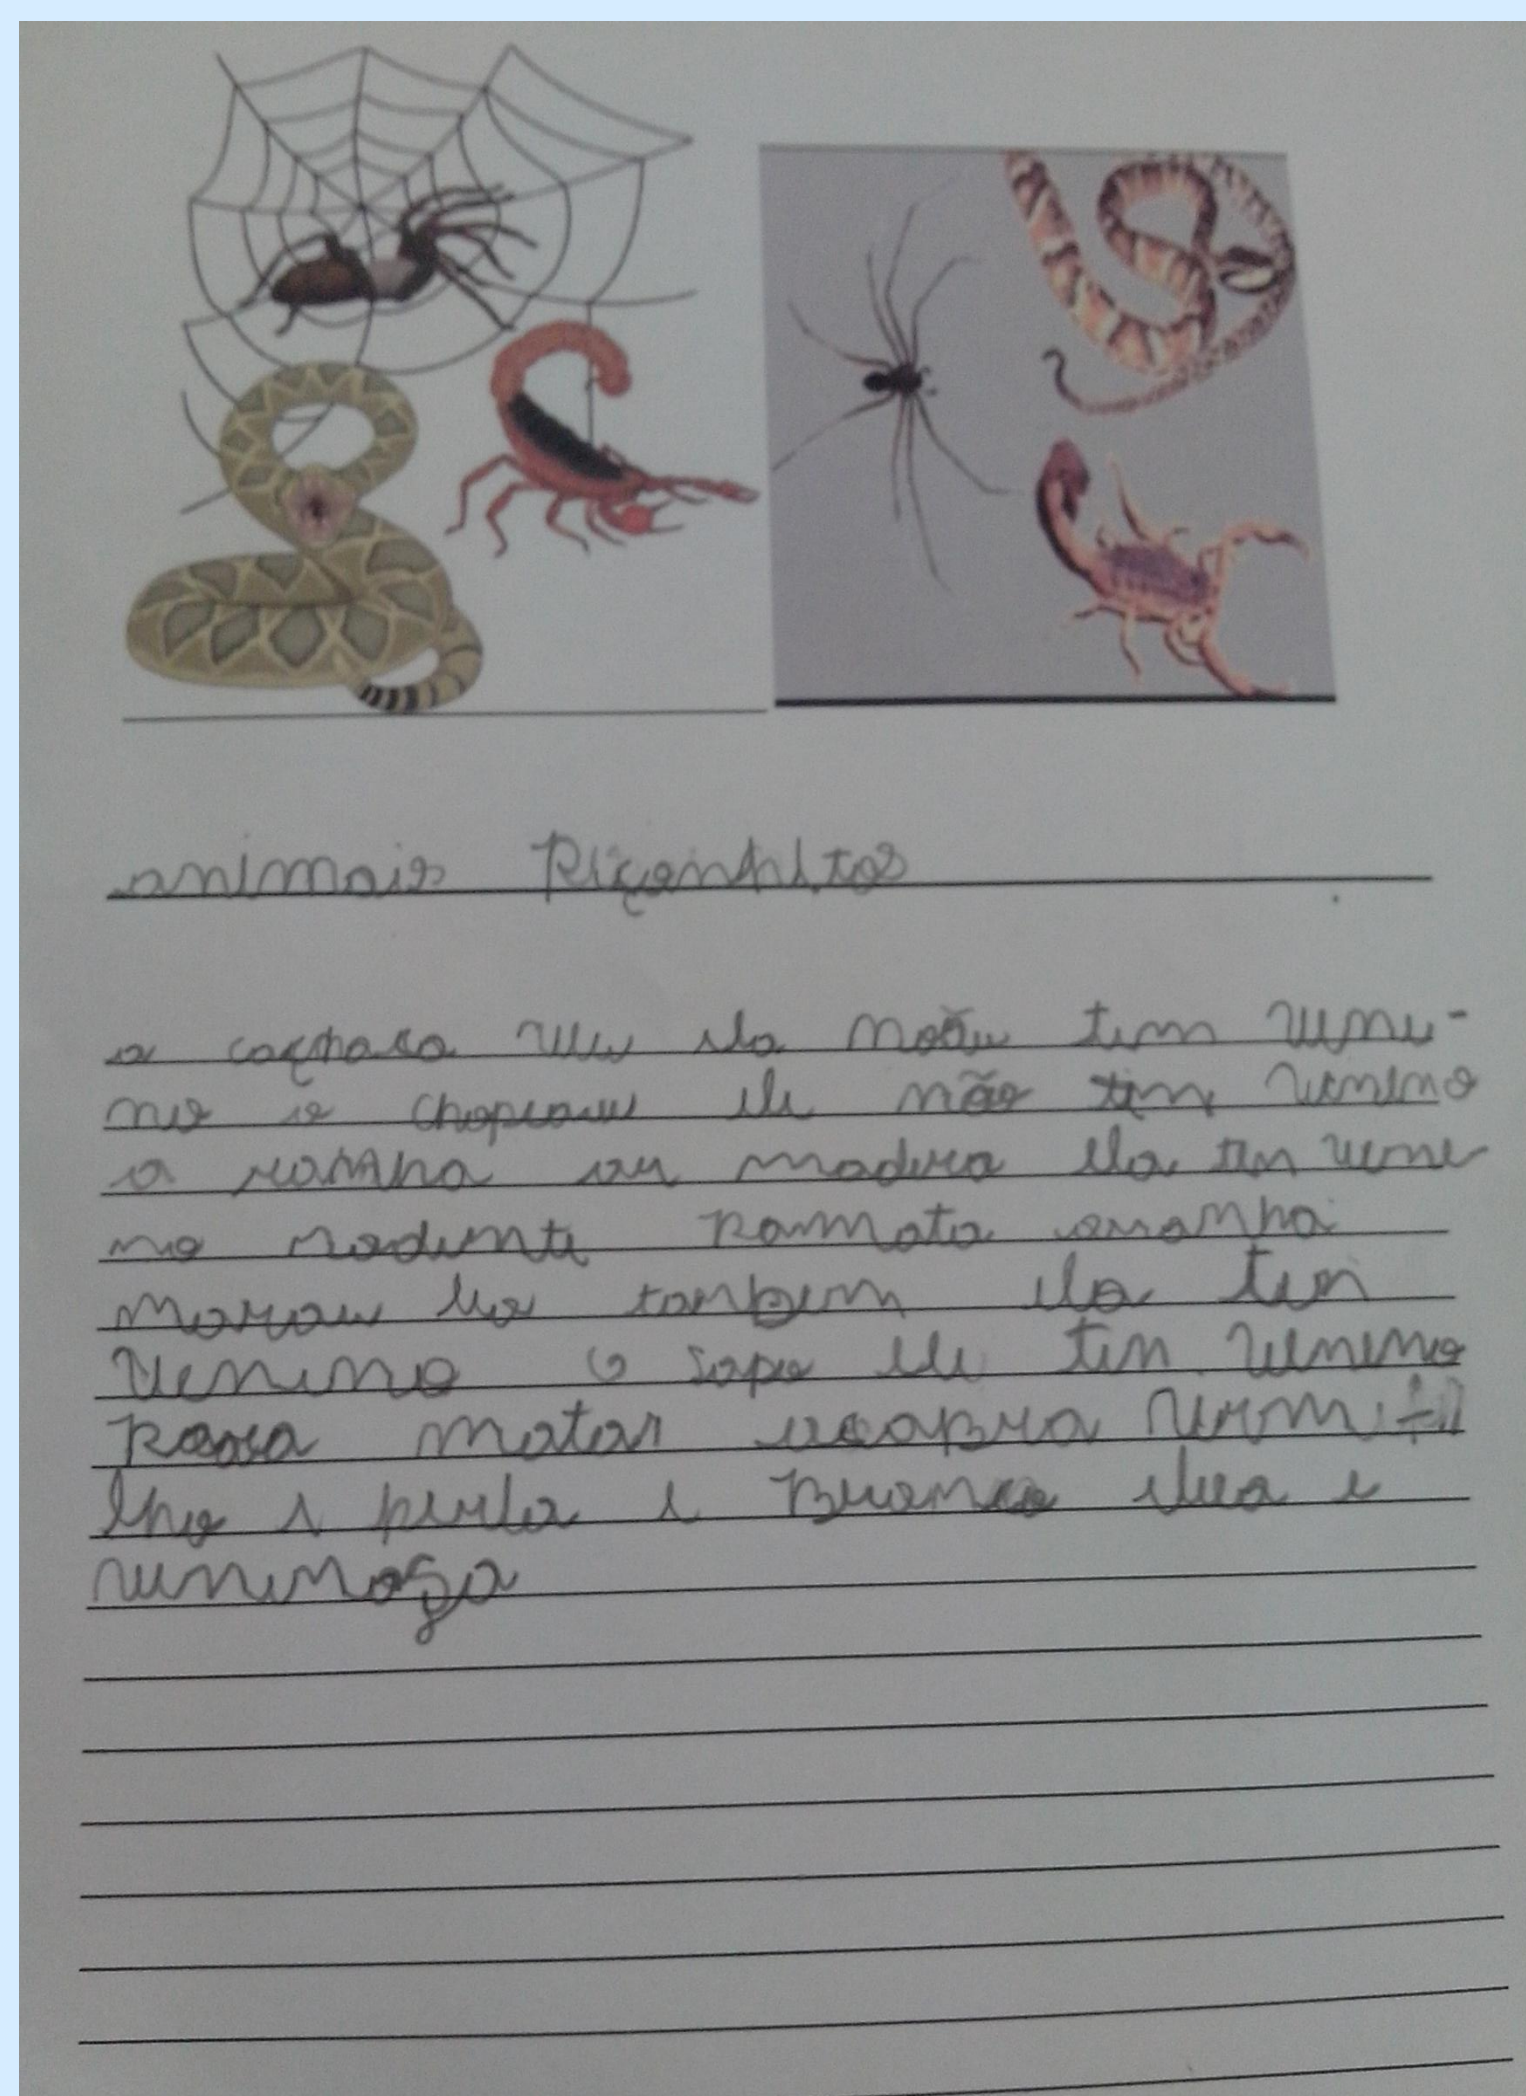 animais Piçonhetos
a caçhasa veu ela não tem vene-
no o chapeau ele não tem veneno
a
madera ela tem vene
no nadente pa mata aranha
marau lho tanbem ela tem
veneno o sapo ele tem veneno
para matar a cobra verm
lha i preta i Branca elea e
venenoza